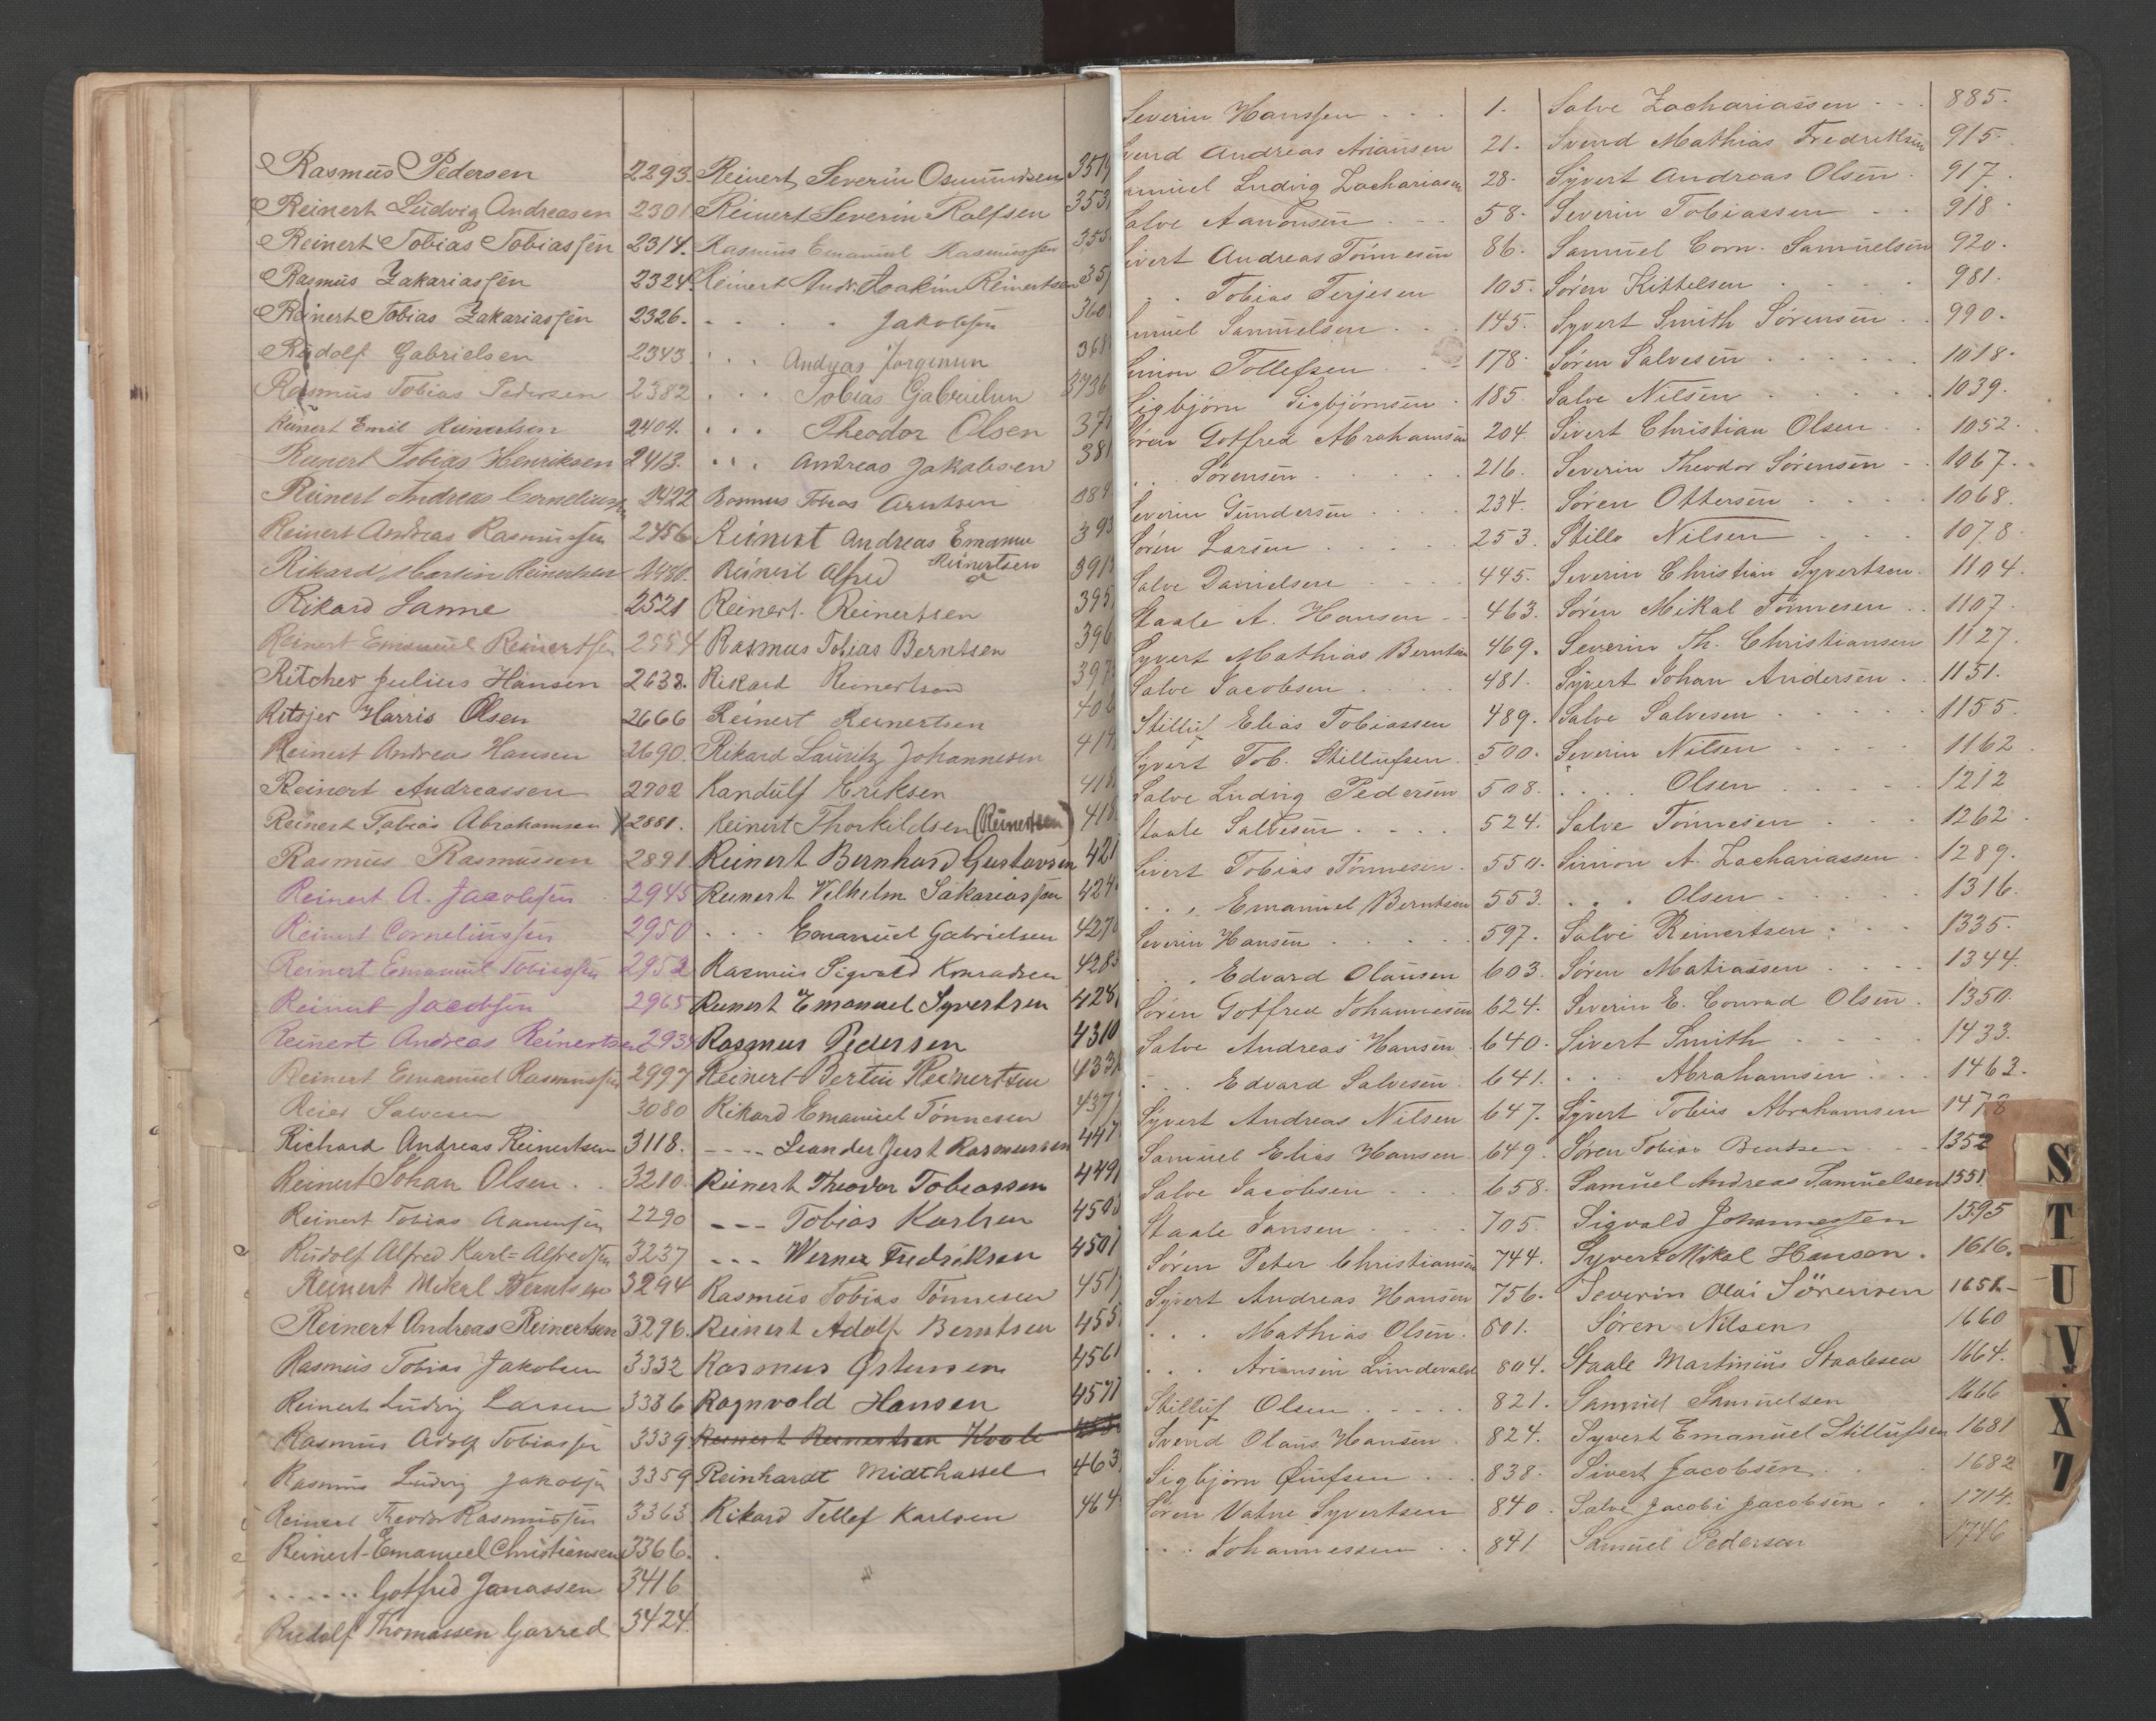 Rasmus Pedersen 2293.
Reinert Ludvig Andreasen 2301
Reinert Tobias Tobiassen 2314.
Rasmus Zakariassen 2324
Reinert Tobias Zakariassen 2326.
Rudolf Gabrielsen 2343
Rasmus Tobias Pedersen 2382
Reinert Emil Reinertsen 2404.
Reinert Tobias Henriksen 2413.
Reinert Andreas Corneliussen 2422
Reinert Andreas Rasmussen 2456
Rikard Martin Reinertsen 2480.
Rikard Janne 2521
Reinert Emanuel Reinertsen 2554
Ritcher Julius Hansen 2638.
Ritsjer Harris Olsen 2666
Reinert Andreas Hansen 2690.
Reinert Andreassen 2702
Reinert Tobias Abrahamsen 2881.
Rasmus Rasmussen 2891
Reinert A. Jacobsen 2945
Reinert Corneliussen 2950
Reinert Emanuel Tobiassen 2952
Reinert Jacobsen 2965
Reinert Andreas Reinertsen 293
Reinert Emanuel Rasmussen 2997
Reier Salvesen 3080
Richard Andreas Reinertsen 3118.
Reinert Johan Olsen . . 3210
Reinert Tobias Aanensen 2290
Rudolf Alfred Karl=Alfredsen 3237
Reinert Mikal Berntsen 3294
Reinert Andreas Reinertsen 3296.
Rasmus Tobias Jakobsen 3332
Reinert Ludvig Larsen 3336
Rasmus Adolf Tobiassen 3339
Rasmus Ludvig Jakobsen 3359
Reinert Theodor Rasmussen 3363
Reinert Emanuel Christiansen 3366.
. . . . . . Gotfred Janassen 3416
Rudolf Thomassen Garred 3424.
Reinert Severin Osmundsen 351
Reinert Severin Rolfsen 353
Rasmus Emanuel Rasmussen 353
Reinert Andr. Joakim Reinertsen 35
. . . . Jakobsen 360
. . . Andreas Jørgensen 368
. . . Tobias Gabrielsen 3736
. . . Theodor Olsen 37
. . . Andreas Jakobsen 381
Rasmus Tobias Arntsen
Reinert Andreas Emanu Reinertsen 393
Reinert Alfred 391
Reinert Reinertsen 395
Rasmus Tobias Berntsen 396
Rikard Reinertsen 397
Reinert Reinertsen 40
Rikard Lauritz Johannesen 41
Randulf Eriksen 418
Reinert Thorkildsen (Reinertsen) 418
Reinert Bernhard Gustavsen 421
Reinert Vilhelm Sakariassen 424
. . . Emanuel Gabrielsen 427
Rasmus Sigvald Konradsen 428
Reinert Emanuel Syvertsen 428
Rasmus Pedersen 4310
Reinert Bertin Reinertsen 433
Rikard Emanuel Tønnesen 437
---- Leander Just Rasmussen 447
Reinert Theodor Tobiassen 449
--- Tobias Karlsen 450
--- Werner Fredriksen 4501
Rasmus Tobias Tønnesen 451
Reinert Adolf Berntsen 455
Rasmus Østensen 456
Ragnvald Hansen 457
Reinert Reinertsen Kvale
Reinhardt Midthassel 463
Rikard Tellef Karlsen 464
Severin Hanssen . . . . 1.
vend Andreas Ariansen 21.
amuel Ludvig Zachariasen 28.
Salve Aanonsen . . . 58.
ivert Andreas Tønnesen 86.
. . Tobias Terjesen 105.
amuel Samuelsen . . . 145.
Simon Tollefsen . . - 178.
Sigbjørn Sigbjørnsen . 185.
Søren Gotfred Abrahamsen 204.
. . Sørensen . . . . 216.
Severin Gundersen . . . . 234.
Søren Larsen . . . . . 253.
Salve Danielsen . . . . 445.
Staale A. Hansen - - 463.
Syvert Mathias Berntsen 469.
Salve Jacobsen . . . . 481.
Stilluf Elias Tobiassen 489.
Syvert Tob. Stillufsen . 500.
Salve Ludvig Pedersen 508.
Staale Salvesen . . . . 524.
Sivert Tobias Tønnesen . 550.
. . . Emanuel Berntsen 553.
Severin Hansen . . . . . 597.
. . . Edvard Olausen 603.
Søren Gotfred Johannesen 624.
Salve Andreas Hansen . 640.
. . . Edvard Salvesen . 641.
Syvert Andreas Nilsen 647.
Samuel Elias Hansen 649.
Salve Jacobsen . . . 658.
Staale Jansen . . . . 705.
Søren Peter Christiansen 744.
Syvert Andreas Hansen 756.
. . . Mathias Olsen . 801.
. . . Ariansen Lundevold 804.
Stilluf Olsen . . . . . 821.
Svend Olaus Hansen . 824.
Sigbjørn Eiufsen . . . 838.
Søren Vatne Syvertsen 840.
. . . Johannessen . . 841
Salve Zachariassen . . . 885.
Svend Mathias Fredriksen 915.
Syvert Andreas Olsen . 917.
Severin Tobiassen . . 918.
Samuel Corn. Samuelsen 920.
Søren Kittelsen . . . . . 981.
Syvert Smith Sørensen . . 990.
Søren Salvesen . . . . . . 1018.
Salve Nilsen . . . . . . 1039.
Sivert Christian Olsen . . 1052.
Severin Theodor Sørensen . . 1067.
Søren Ottersen . . . . 1068.
Stille Nilsen . . . 1078.
Severin Christian Syvertsen . 1104.
Søren Mikal Tønnesen . . 1107.
Severin Th. Christiansen 1127.
Syvert Johan Andersen . . 1151.
Salve Salvesen . . . . . 1155.
Severin Nilsen . . . . 1162.
. . . . Olsen . . . . . 1212
Salve Tønnesen . . . 1262.
Simon A. Zachariassen . 1289.
. . . Olsen . . . . . 1316.
Salve Reinertsen . . . 1335.
Søren Matiassen . . . . 1344.
Severin E. Conrad Olsen . 1350.
Sivert Smith . . . . . 1433.
. . . Abrahamsen . . . 1463.
Syvert Tobias Abrahamsen 1478
Søren Tobias Bentsen . . - 1352
Samuel Andreas Samuelsen 1551.
Sigvald Johannessen 1595
Syvert Mikal Hansen . 1616.
Severin Olai Sörensen 1658.-
Søren Nilsen 1660
Staale Martinius Staalesen 1664.
Samuel Samuelsen 1666
Syvert Emanuel Stillufsen 1681
Sivert Jacobsen . . . 1682
Salve Jacobi Jacobsen . . 1714.
Samuel Pedersen 1746
S
T
U
V
X
Z